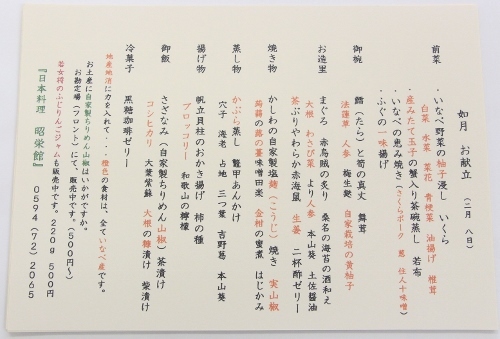 如月　お献立　（二月　八日）
前菜　・いなべ野菜の柚子浸し　いくら
白菜　水菜　菜花　青梗菜　油揚げ　椎茸
・産みたて玉子の蟹入り茶碗蒸し　若布
・いなべの恵み焼き（さくらポーク　葱　住人十味噌）
・ふぐの一味揚げ
御椀　鱈（たら）と筍の真丈　舞茸
法蓮草　人参　梅生麩　自家栽培の黄柚子
お造里　まぐろ　赤烏賊の炙り　桑名の海苔の酒和え
大根　わさび菜　より人参　本山葵　土佐醤油
茶ぶりやわらか赤海鼠　生姜　二杯酢ゼリー
焼き物　かしわの自家製塩麹（こうじ）焼き　実山椒
蒟蒻の蕗の薹味噌田楽　金柑の蜜煮　はじかみ
蒸し物　かぶら蒸し　鼈甲あんかけ
穴子　海老　占地　三つ葉　吉野葛　本山葵
揚げ物　帆立貝柱のおかき揚げ　柿の種
ブロッコリー　和歌山の檸檬
御飯　さざなみ（自家製ちりめん山椒）茶漬け
コシヒカリ　大葉紫蘇　大根の糠漬け　柴漬け
冷菓子　黒糖珈琲ゼリー
地産地消に力を入れて・・・橙色の食材は、全ていなべ産です。
お土産に自家製ちりめん山椒はいかがですか。
お勘定場（フロント）にて、販売中です。（５００円～）
若女将のふじりんごジャムも販売中です。２２０ｇ　５００円
『日本料理　昭栄館』　０５９４（７２）２０６５